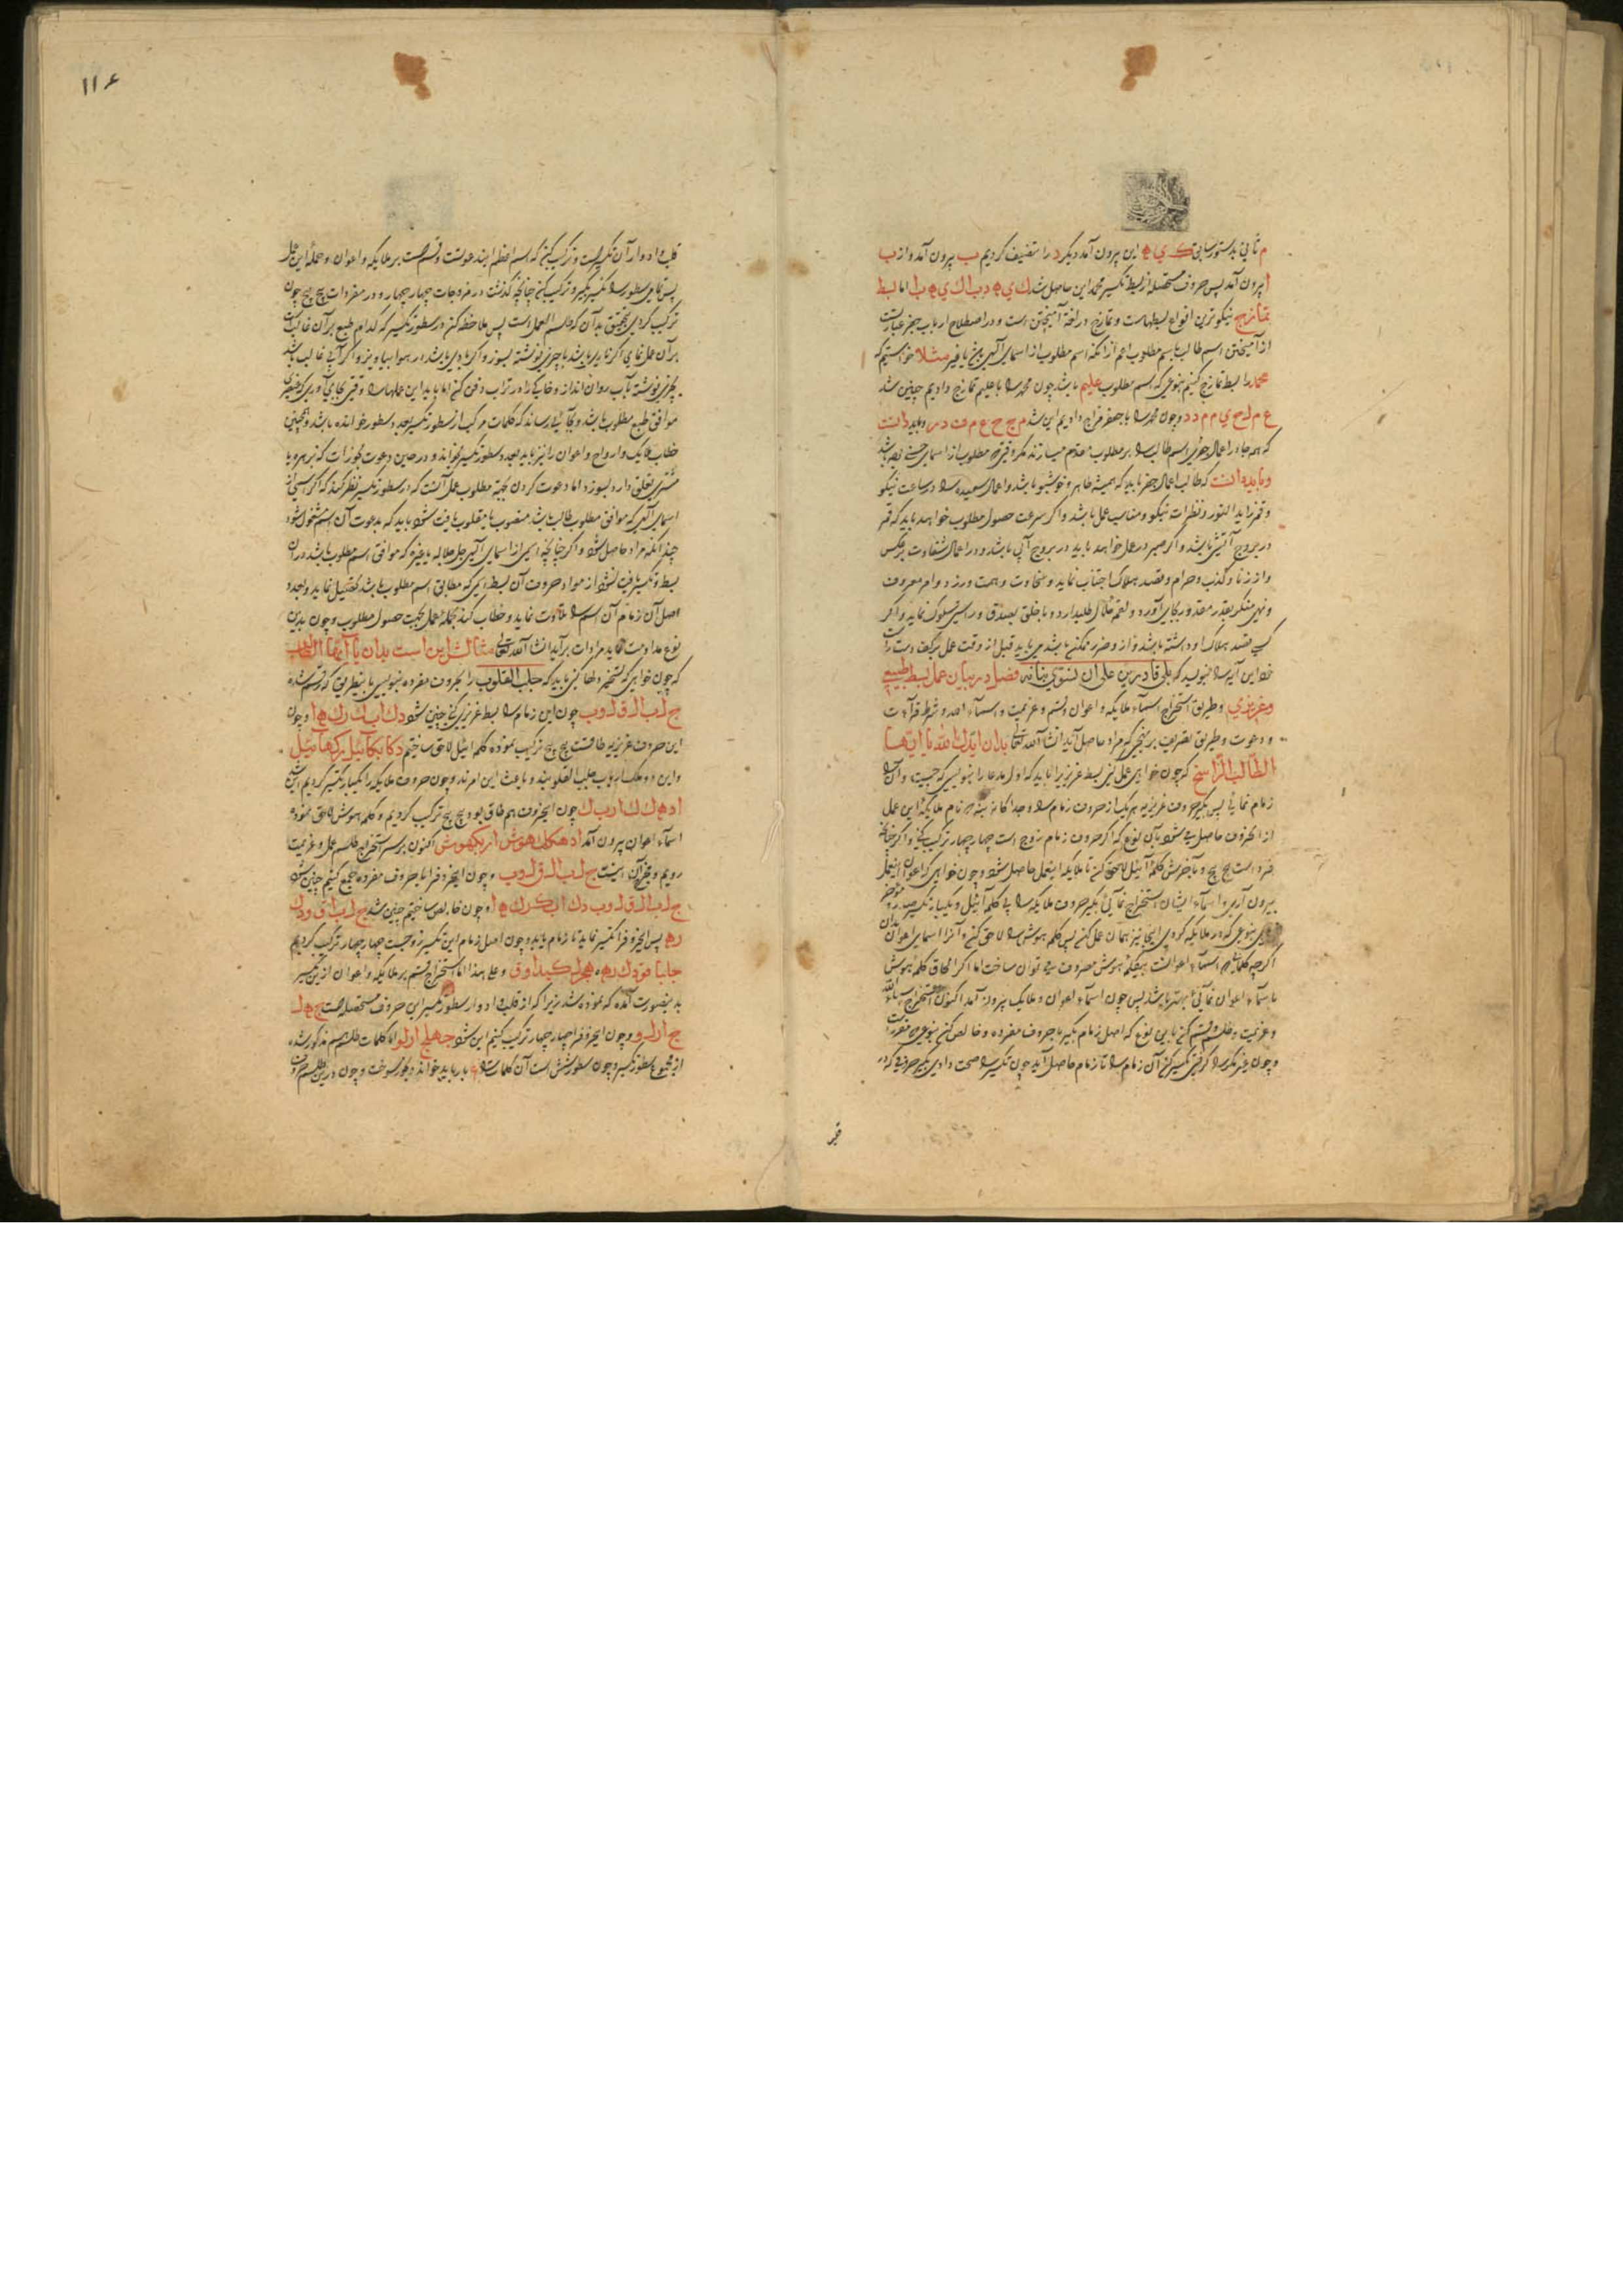 م ثانی بدستور سابق ک ی ه این بیرون آمد دیگر د را تنصیف کردیم ب بیرون آمد و از ب
ا بیرون آمد پس حروف مستحصله از بسط تکسیر محمد این حاصل شد ک ی ه د ب ا ک ی ه ب ا اما بسط
تمازج نیکوترین انواع بسطهاست و تمازج در لغة آمیختن است و در اصطلاح ارباب جفر عبارتست
از آمیختن اسم طالب با اسم مطلوب اعم از آنکه اسم مطلوب از اسمای الهی باشد یا غیر مثلا خواستیم که
محمد را بسط تمازج کنیم بنوعی که اسم مطلوب علیم باشد چون محمد را با علیم تمازج دادیم چنین شد
ع م ل ح ی م م د و چون محمد را با جعفر مزاج دادیم این شد م ج ح ع م ف د ر و باید دانست
که همه جا در اعمال جفری اسم طالب را بر مطلوب مقدم میسازند مگر وقتی که مطلوب از اسمای حسنی باشد
و باید دانست که طالب اعمال جفر باید که همیشه طاهر و خوشبو باشد و اعمال سعیده را در ساعت نیکو
و قمر زاید النور و نظرات نیکو و مناسب عمل باشد و اگر سرعت حصول مطلوب خواهد باید که قمر
در بروج آتشی باشد و اگر صبر در عمل خواهد باید در بروج آبی باشد و در اعمال شقاوت برعکس
و از زنا و کذب و حرام و قصد هلاک اجتناب نماید و سخاوت و همت ورزد و امر معروف
و نهی منکر بقدر مقدور بجای آورد و لقمه حلال طلب دارد و با خلق بصدق و راستی سلوک نماید و اگر
کسی قصد هلاک او داشته باشد و از او ضرر ممکن باشد می باید قبل از وقت عمل بر کف دست راست
خود این آیه را بنویسد که بلی قادرین علی ان نسوی بنانه فصل در بیان عمل بسط طبیعی
و عزیزی و طریق استخراج اسماء ملایکه و اعوان و قسم و عزیمت و اسماء الله و شرط قرآءت
و دعوت و طریق تصریف بر نهجی که مراد حاصل آید انشا الله تعالی بدان ایدک الله یا ایها
الطالب الراسخ که چون خواهی عمل کنی بسط عزیزی را باید که اول مدعا را بنویسی که چیست و آن را
زمام نمائی پس بگیر حروف عزیزیه هر یک از حروف زمام را و جداگانه بنه نام ملایکه این عمل
از آن حروف حاصل می شود بآن نوع که اگر حروف زمام زوج است چهار چهار ترکیب کنی و اگر چنانچه
فرد است پنج پنج و بآخرش کلمه آئیل لاحق کنی تا ملایکه این عمل حاصل شود و چون خواهی که اعوان این عمل
بیرون آری و اسماء ایشان استخراج نمائی بگیر حروف ملایکه را بی کلمه آئیل و یکبار تکسیر صدر و مؤخر
کن بنوعی که در ملایکه کردی اینجا نیز همان عمل کن پس کلمه هوش را لاحق کن و آنرا اسمای اعوان بدان
اگر چه کلمات اسماء اعوان بیکلمه هوش مصروف می توان ساخت اما اگر الحاق کلمه هوش
باسماء اعوان نمائی بهتر باشد پس چون اسماء اعوان و ملایک بیرون آمد اکنون استخراج اسماء الله
و عزیمت و طلسم و قسم کن باین نوع که اصل زمام بگیر با حروف مفرده و خالص کن بنوعی که مقررست
و چون غیر مکرر را گرفتی تکسیر کن آن زمام را تا زمام حاصل آید چون تکسیر را صحت دادی بگیر حروفی که در
قلب
۱۱۶
قلب و ادوار آن تکسیر است و ترکیب کن که اسم اعظم این دعوتست و قسم است بر ملایکه و اعوان و جمله این عمل
پس تمامی سطور را تکسیر بگیر و ترکیب کن چنانچه گذشت در مزوجات چهار چهار و در مفردات پنج پنج چون
ترکیب کردی بتحقیق بدان که طلسم العمل است پس ملاحظه کن در سطور تکسیر که کدام طبع بر آن غالبست
بر آن عمل نمای اگر ناری باشد باچربی نوشته بسوز و اگر بادی باشد در هوا بیاویز و اگر آبی غالب باشد
بچیزی نوشته بآب روان انداز و خاکی را در تراب دفن کن اما باید این عملها را وقتی بجای آوری که قمر
موافق طبع مطلوب باشد و بجائی رساند که کلمات مرکب از سطور تکسیر بعدد سطور خوانده باشد و همچنین
خطاب ملایک و ارواح و اعوان را نیز باید بعدد سطور تکسیر بخواند و در حین دعوت بخورات که بزهره یا
مشتری تعلق دارد بسوزد اما دعوت کردن بجهة مطلوب عمل آنست که در سطور تکسیر نظر کند که اگر اسمی از
اسمای الهی که موافق مطلوب طالب باشد منصوب یا مقلوب یافت شود باید که بدعوت آن اسم مشغول شود
چندانکه مراد حاصل شود و اگر چنانچه اسمی از اسمای الهی جل جلاله یا غیره که موافق اسم مطلوب باشد در آن
بسط و تکسیر یافت نشود از مواد حروف آن بسط اسمی که مطابق اسم مطلوب باشد تحصیل نماید و بعدد
اصل آن زمام آن اسم را تلاوت نماید و خطاب کند بجمله عمل بجهت حصول مطلوب و چون بدین
نوع مداومت نماید مرادات برآید انشا الله تعالی مثالش این است بدان یا ایها الطالب
که چون خواهی که تسخیر دلها کنی باید که جلب القلوب را بحروف مفرده بنویسی باین طریق که مرقوم شده
ج ل ب ا ل ق ل و ب چون این زمام را بسط عزیزی کنی چنین شود د ک ا ب ک ر ک ه ا و چون
این حروف عزیزیه طاقست پنج پنج ترکیب نموده کلمه ائیل لاحق ساختیم دکابکائیل رکهائیل
و این دو ملک ارباب جلب القلوبند و باعث این امرند و چون حروف ملایکه را یکبار تکسیر کردیم این شد
ا د ه ک ک ا ر ب ک چون این حروف هم طاق بود پنج پنج ترکیب کردیم و کلمه هوش لاحق نموده
اسماء اعوان بیرون آمد ادهککهوش اربکهوش اکنون بر سر استخراج طلسم عمل و عزیمت
رویم و بخور آن اینست ج ل ب ا ل ق ل و ب و چون این حروف را با حروف مفرده جمع کنیم چنین شود
ج ل ب ا ل ق ل و ب د ک ا ب ک ر ک ه ا و چون خالص ساختیم چنین شد ج ل ب ا ق و د ک
ر ه پس این حروف را تکسیر نماید تا زمام یابد و چون اصل زمام این تکسیر زوجست چهار چهار ترکیب کردیم
و علی هذا اما استخراج قسم بر ملایکه و اعوان ازین تکسیر
بدینصورت آمده که نموده شد زیرا که از قلب و ادوار سطور تکسیر این حروف مستحصله است ج ه ل
ج ا ر ل و و چون این حروف را چهار چهار ترکیب کنیم این شود جهلج ارلو اما کلمات طلسم مذکور شده
از مجموع سطور تکسیر و چون سطور شش است آن کلمات را بار باید خواند و بخور سوخت و چون درین طلسم حروف